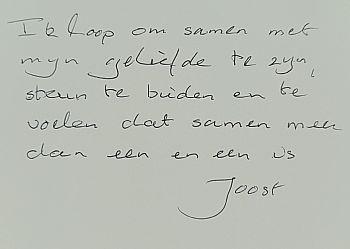 Ik loop om samen met
mijn geliefde te zijn,
steun te bieden en te
voelen dat samen meer
dan een en een is
Joost